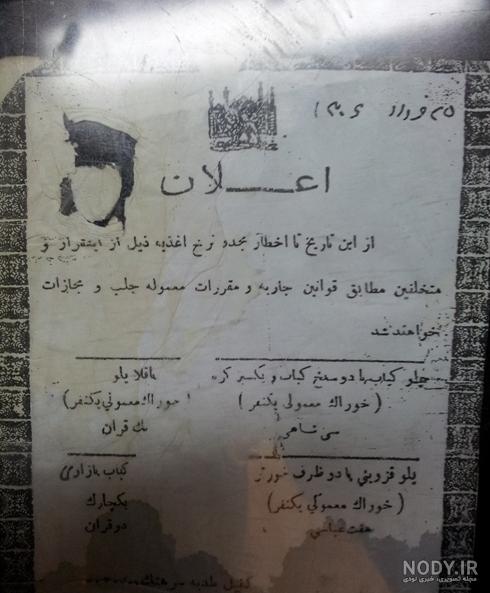 ۲۵ خرداد ۱۳۰۶
اعـــلان
از این تاریخ تا اخطار مجدد نرخ اغذیه ذیل از اینقرار و
متخلفین مطابق قوانین جاریه و مقررات معموله جلب و مجازات
خواهند شد
چلو کباب با دو سیخ کباب و یکسیر کره
(خوراک معمولی یکنفر)
سی شاهی
باقلا پلو
(خوراک معمولی یکنفر)
یک قران
پلو قزوینی با دو ظرف خورش
(خوراک معمولی یکنفر)
هفت عباسی
کباب بازاری
یکچارک
دو قران
کفیل بلدیه سرهنگ
NODY.IR
مجله تصویری، خبری نودی